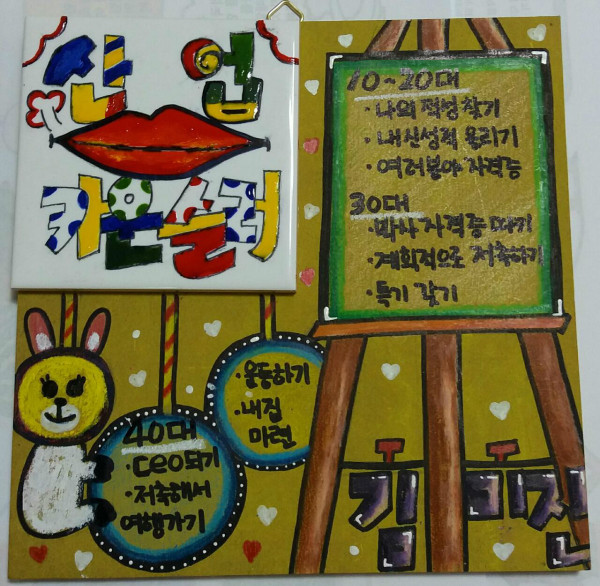 산업
카운슬러
10~20대
·나의 적성 찾기
·내신성적 올리기
·여러분야 자격증
30대
·박사 자격증 따기
·계획적으로 저축하기
·특기 갖기
40대
·CEO되기
·저축해서
여행가기
·운동하기
·내집
마련
김미진